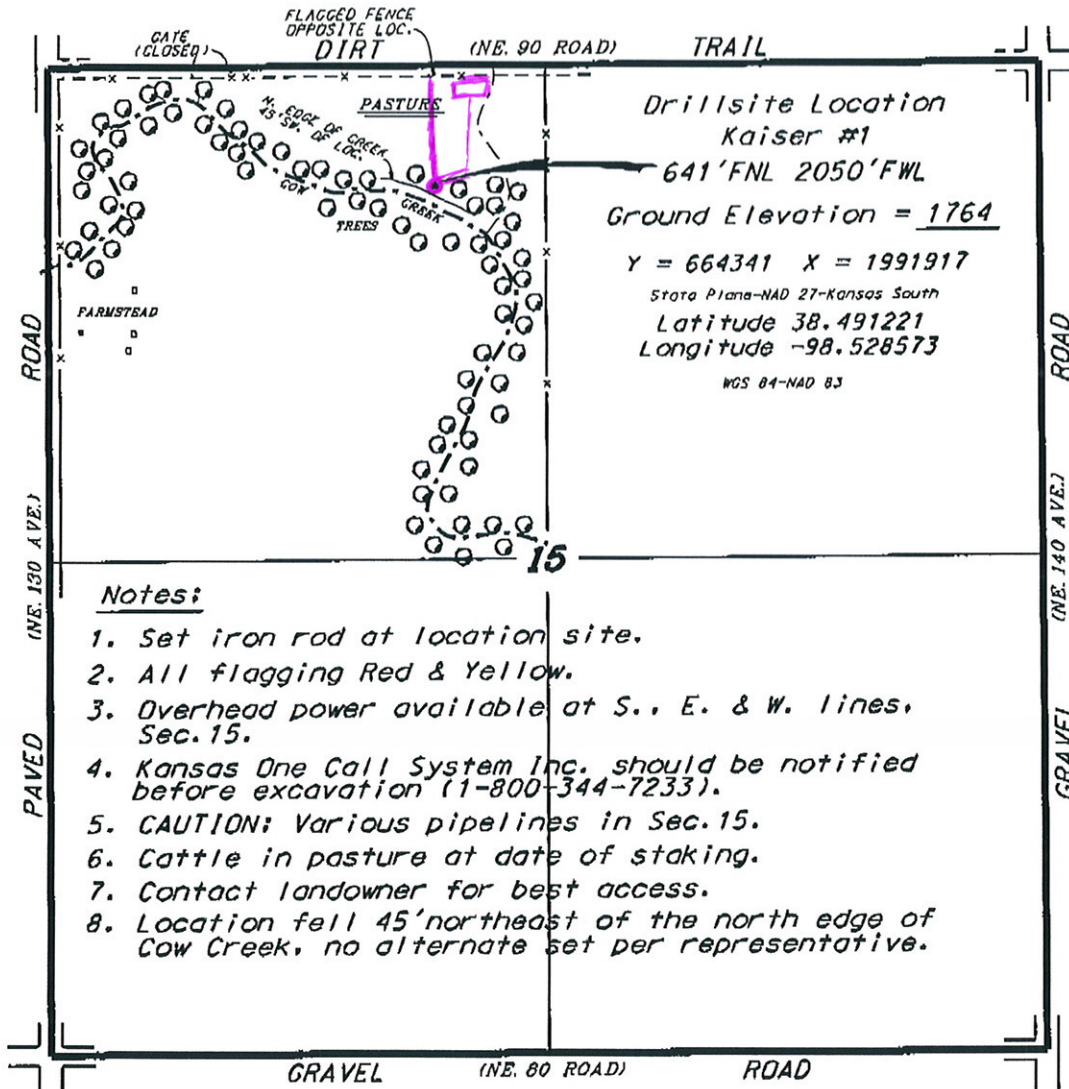 FLAGGED FENCE
OPPOSITE LOC.
GATE
(CLOSED)
DIRT (NE. 90 ROAD) TRAIL
PASTURE
N. EDGE OF CREEK
45' SW. OF LOC.
COW CREEK
TREES
FARMSTEAD
Drillsite Location
Kaiser #1
641'FNL 2050'FWL
Ground Elevation = 1764
Y = 664341 X = 1991917
State Plane-NAD 27-Kansas South
Latitude 38.491221
Longitude -98.528573
WGS 84-NAD 83
ROAD
(NE. 130 AVE.)
PAVED
ROAD
(NE. 140 AVE.)
GRAVEL
15
Notes:
1. Set iron rod at location site.
2. All flagging Red & Yellow.
3. Overhead power available at S., E. & W. lines,
Sec. 15.
4. Kansas One Call System Inc. should be notified
before excavation (1-800-344-7233).
5. CAUTION: Various pipelines in Sec. 15.
6. Cattle in pasture at date of staking.
7. Contact landowner for best access.
8. Location fell 45'northeast of the north edge of
Cow Creek, no alternate set per representative.
GRAVEL (NE. 80 ROAD) ROAD